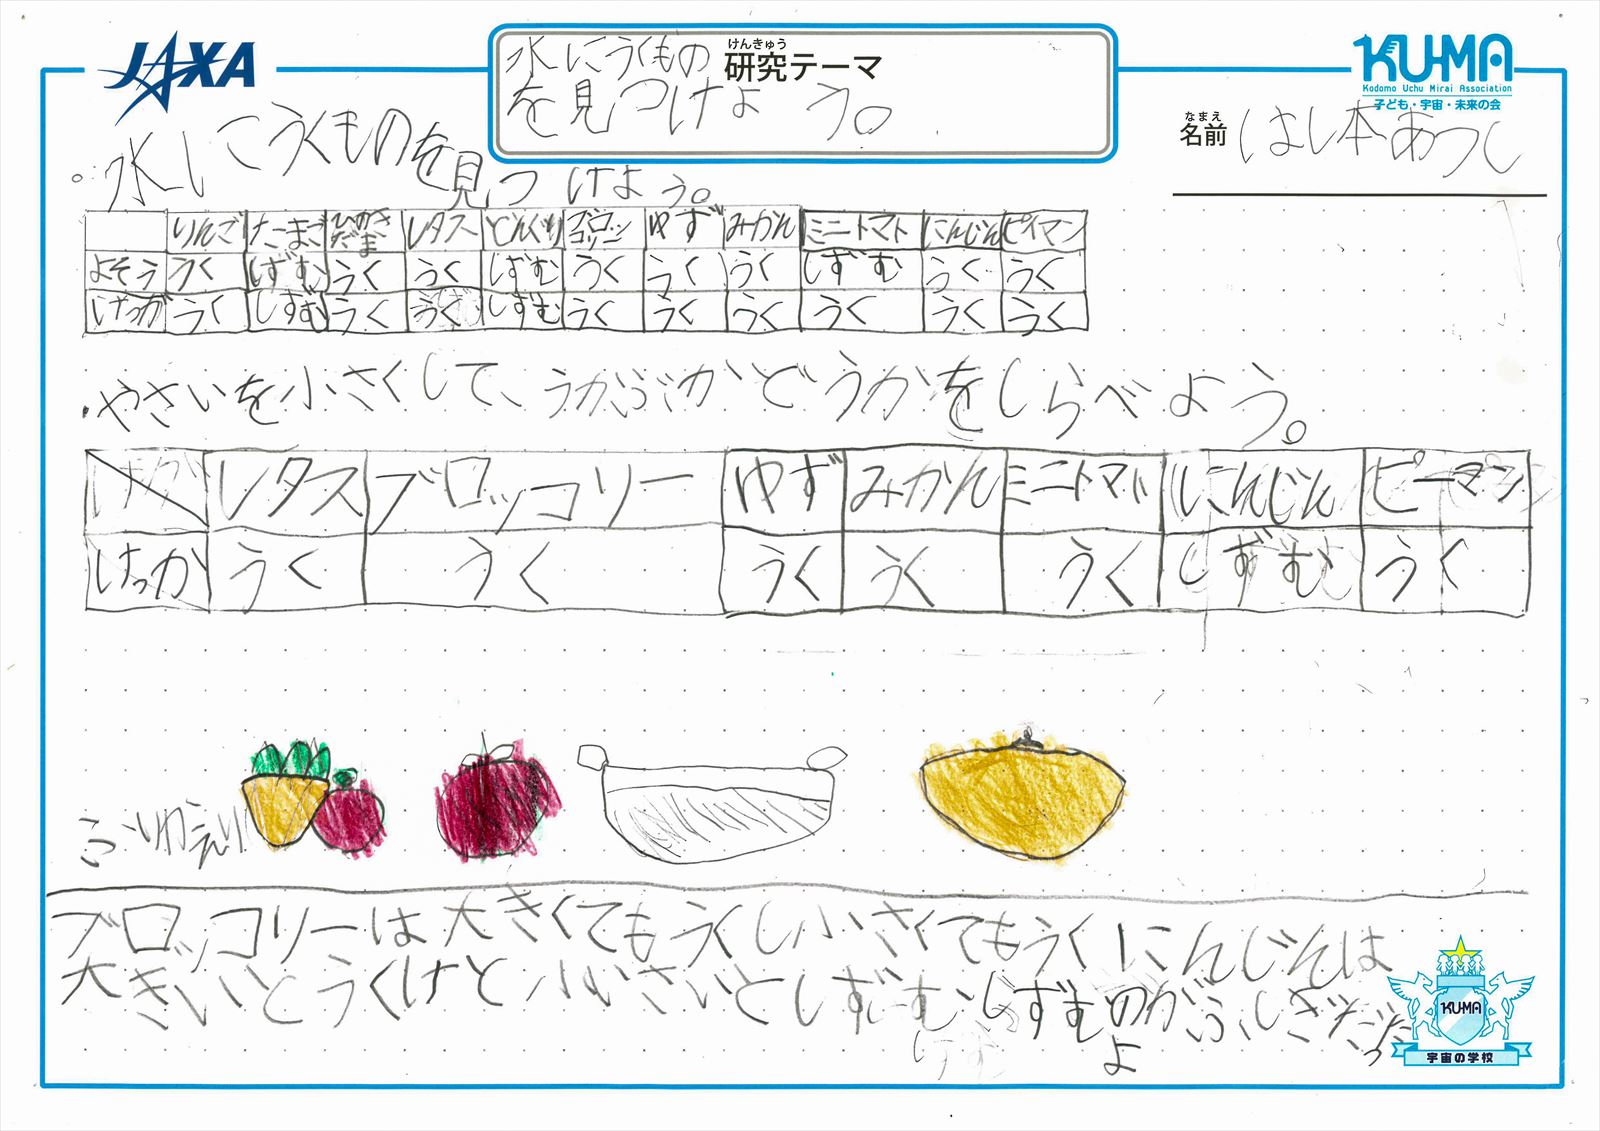 JAXA
けんきゅう
研究テーマ
水にうくもの
を見つけよう。
KU-MA
Kodomo Uchu Mirai Association
子ども・宇宙・未来の会
なまえ
名前 はし本あつし
水にうくものを見つけよう。
りんご たーまご ひかさだま レタス どんぐり ブロッコリー ゆず みかん ミニトマト にんじん ピイマン
よそう うく しずむ うく うく しずむ うく うく うく しずむ うく うく
けっか うく しずむ うく うく しずむ うく うく うく うく うく うく
・やさいを小さくして うかぶかどうかをしらべよう。
レタス ブロッコリー ゆず みかん ミニトマト にんじん ピーマン
けっか うく うく うく うく うく しずむ うく
ふりかえり
ブロッコリーは大きくてもうくし小さくてもうくにんじんは
大きいとうくけど小さいとしずむ しずむのがふしぎだった
よ
KU-MA
宇宙の学校